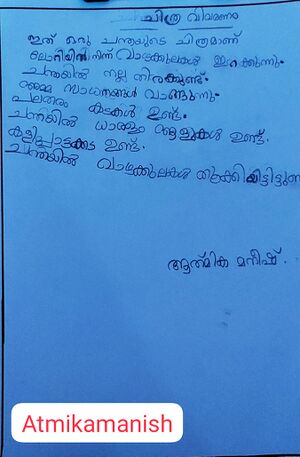 ചിത്ര വിവരണം
ഇത് ഒരു ചന്തയുടെ ചിത്രമാണ്
ലോറിയിൽ നിന്ന് വാഴക്കുലകൾ ഇറക്കുന്നു.
ചന്തയിൽ നല്ല തിരക്കുണ്ട്.
അമ്മ സാധനങ്ങൾ വാങ്ങുന്നു.
പലതരം കടകൾ ഉണ്ട്.
ചന്തയിൽ ധാരാളം ആളുകൾ ഉണ്ട്.
കളിപ്പാട്ടക്കട ഉണ്ട്.
ചന്തയിൽ വാഴക്കുലകൾ തൂക്കിയിട്ടിട്ടുണ്ട്
ആത്മിക മനീഷ്.
Atmikamanish